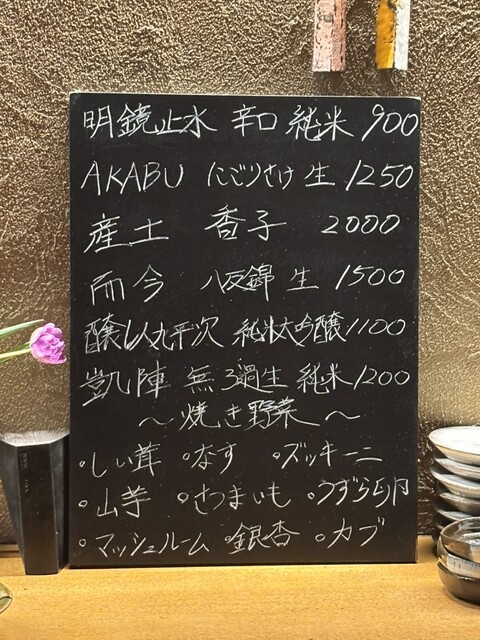 明鏡止水 辛口 純米 900
AKABU にごりさけ 生 1250
産土 香子 2000
而今 八反錦 生 1500
醸し人九平次 純米大吟醸 1100
凱陣 無ろ過生 純米 1200
〜焼き野菜〜
・しい茸 ・なす ・ズッキーニ
・山芋 ・さつまいも ・うずら卵
・マッシュルーム ・銀杏 ・カブ